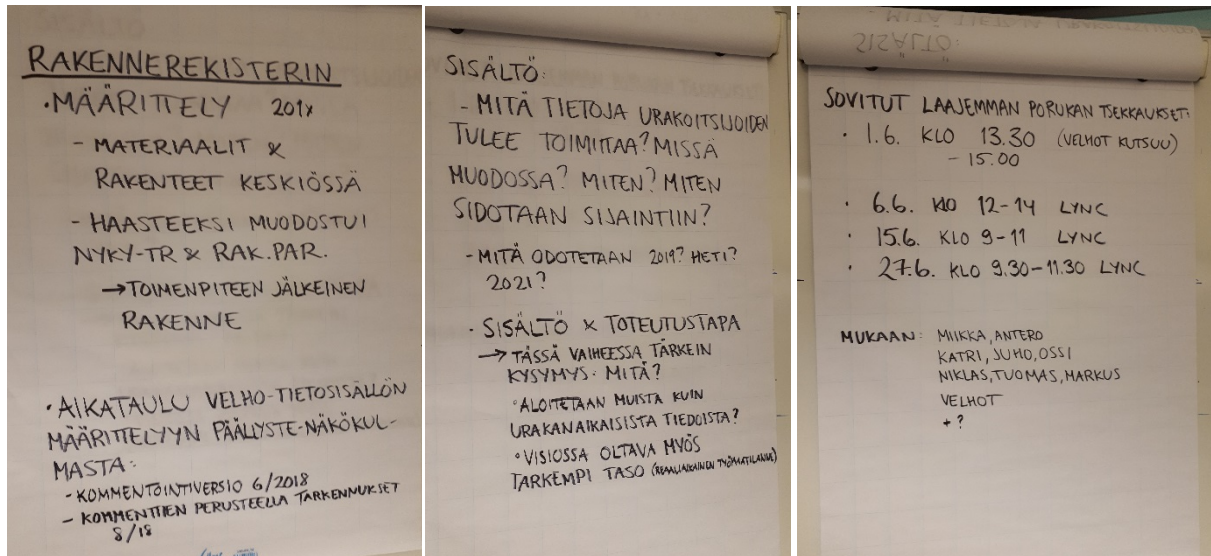 RAKENNEREKISTERIN
• MÄÄRITTELY 201x
- MATERIAALIT &
RAKENTEET KESKIÖSSÄ
- HAASTEEKSI MUODOSTUI
NYKY-TR & RAK.PAR.
→ TOIMENPITEEN JÄLKEINEN
RAKENNE
• AIKATAULU VELHO-TIETOSISÄLLÖN
MÄÄRITTELYYN PÄÄLLYSTE-NÄKÖKUL-
MASTA:
- KOMMENTOINTIVERSIO 6/2018
- KOMMENTTIEN PERUSTEELLA TARKENNUKSET
8/18
SISÄLTÖ:
- MITÄ TIETOJA URAKOITSIJOIDEN
TULEE TOIMITTAA? MISSÄ
MUODOSSA? MITEN? MITEN
SIDOTAAN SIJAINTIIN?
- MITÄ ODOTETAAN 2019? HETI?
2021?
• SISÄLTÖ & TOTEUTUSTAPA
→ TÄSSÄ VAIHEESSA TÄRKEIN
KYSYMYS: MITÄ?
° ALOITETAAN MUISTA KUIN
URAKANAIKAISISTA TIEDOISTA?
° VISIOSSA OLTAVA MYÖS
TARKEMPI TASO (REAALIAIKAINEN TYÖMAATILANNE)
SISÄLTÖ:
SOVITUT LAAJEMMAN PORUKAN TSEKKAUKSET:
• 1.6. KLO 13.30 (VELHOT KUTSUU)
- 15.00
• 6.6. KLO 12-14 LYNC
• 15.6. KLO 9-11 LYNC
• 27.6. KLO 9.30-11.30 LYNC
MUKAAN: MIIKKA, ANTERO
KATRI, JUHO, OSSI
NIKLAS, TUOMAS, MARKUS
VELHOT
+ ?